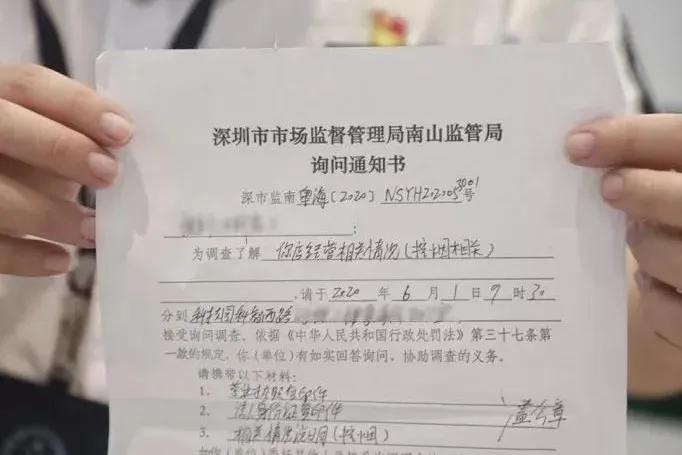 深圳市市场监督管理局南山监管局
询问通知书
深市监南 粤海〔2020〕NSYH2020053001号
:
为调查了解 你店经营相关情况(控烟相关)
,请于 2020 年 6 月 1 日 9 时 30
分到 科技园科苑西路
接受询问调查。依据《中华人民共和国行政处罚法》第三十七条第
一款的规定,你(单位)有如实回答询问、协助调查的义务。
请携带以下材料:
1、营业执照复印件
2、法人身份证复印件 盖公章
3、相关情况说明(控烟)